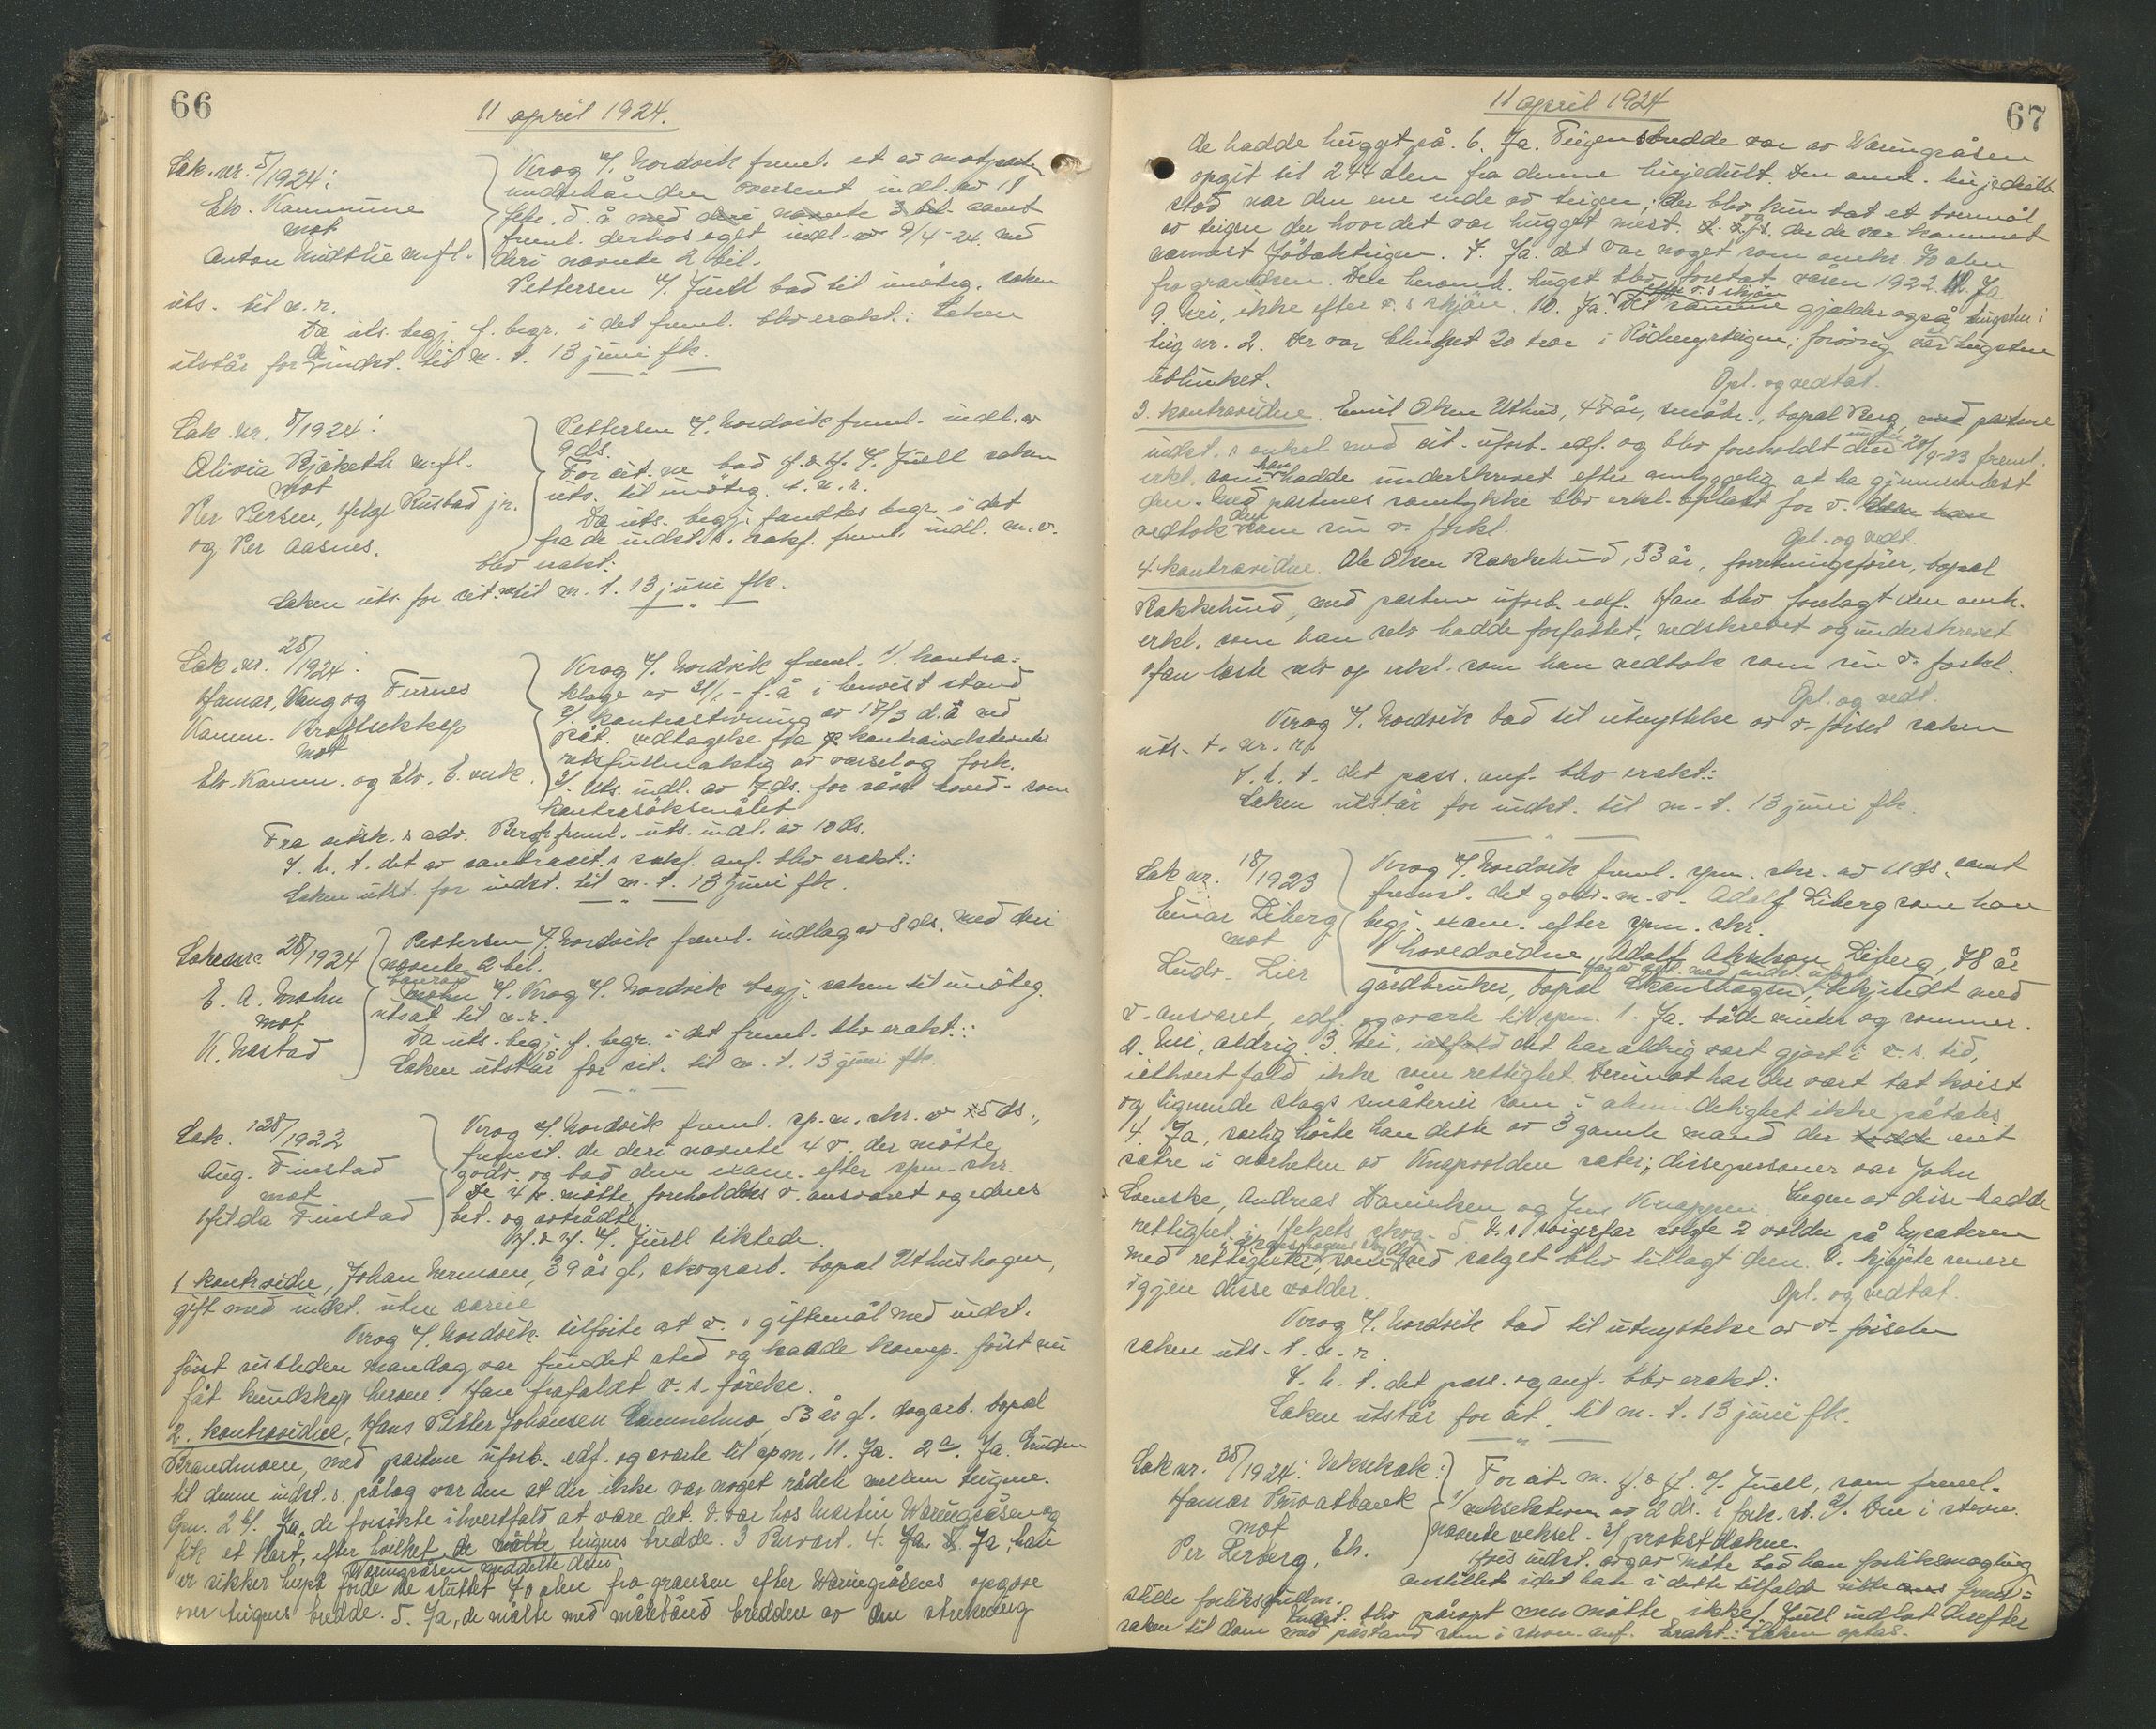 66
11 april 1924.
Sak. nr. 5/1924:
Elv. Kommune
mot
Anton Midtlie m.fl.
Krog f. Nordvik freml. et av motparten
underhånden oversent indl. av 11
febr. d. å med deri nævnte 3 bil. samt
freml. derhos eget indl. av 9/4-24. med
deri nævnte 2 bil.
Pettersen f. Juell bad til imøteg. saken
uts. til n. r.
Da uts. begj. f. begr. i det freml. blev erakt.: Saken
utstår for de indst. til m. t. 13 juni fk.
Sak. nr. 8/1924:
Olivia Bjøketh m.fl.
mot
Per Persen, Helge Rustad jr.
og Per Aasnes.
Pettersen f. Nordvik freml. indl. av
9 ds.
For cit. ne bad H.&H. f. Juell saken
uts. til imøteg. t. n. r.
Da uts. begj. fandtes begr. i det
fra de indst. s. sakf. freml. indl. m. v.
blev erakt:
Saken uts. for cit. ne til m. t. 13 juni fk.
Sak. nr. 25/1924:
Hamar, Vang og Furnes
Komm. Kraftselskap
mot
Elv. Komm. og Elv. E. verk.
Krog f. Nordvik freml. 1/. kontra-
klage av 31/1 - f. å i henvist stand
2/. kontrastevning av 17/3 d. å med
påt. vedtagelse fra kontraindstevntes
retsfuldmæktig av varsel og fork.
3/. Uts. indl. av 7 ds. for såvel hoved- som
kontrasøksmålet
Fra citsk. s adv. Bergh freml. uts. indl. av 10 ds.
I. h. t. det av contracit. s sakf. anf. blev erakt.:
Saken utst. for indst. til m. t. 13 juni fk.
Saknr. 28/1924
E. A. Mohn
mot
K. Nestad
Pettersen f. Nordvik freml. indlæg av 8 ds. med deri
nævnte 2 bil.
f. Krog f. Nordvik begj. saken til imøteg.
utsat til n. r.
Da uts. begj. f. begr. i det freml. blev erakt.:
Saken utstår for cit. til m. t. 13 juni fk.
Sak. 128/1922
Aug. Finstad
mot
Hilda Finstad
Krog f. Nordvik freml. sp. m. skr. av 5 ds.,
fremst. de deri nævnte 4 v. der møtte
godv. og bad dem exam. efter spm. skr.
De 4 v. møtte, foreholdtes v. ansvaret og edens
bet. og avtrådte.
H. & H. f. Juell tilstede.
1 kontravidne, Johan Hermoen, 39 år gl, skogsarb. bopæl Uthushagen,
gift med indst. uten
Krog f. Nordvik tilføite at v. s giftemål med indst.
først sistleden mandag var fundet sted og hadde komp. først nu
fåt kundskap herom. Han frafaldt v. s. førelse.
2. kontravidne, Hans Petter Johansen Lømmelmo, 53 år gl. dagarb. bopæl
Strandmoen, med partene uforb. edf. og svarte til spm. 11. Ja. 2a. Ja. Grunden
til denne indst. s. pålæg var den at der ikke var noget råtdele mellem teigene.
Spm. 2 b/. Ja, de forsøkte ihvertfald at være det. V. var hos Martin Waringsåsen og
fik et kart, efter hvilket de målte teigens bredde. 3 Besvart. 4. Ja. Ja, han
er sikker herpå Waringsåsen meddelte dem
fordi de sluttet 70 alen fra grænsen efter Waringsåsens opgave
over teigens bredde. 5. Ja, de målte med målebånd bredden av den strekning
67
11 april 1924
de hadde hugget på. 6. Ja. Teigens bredde var av Waringsåsen
opgit til 244 alen fra denne linjedelt. Den omh. linjedelt
stod var den ene ende av teigen; der blev kun tat et tvermål
av teigen der hvor det var hugget mest. der de var kommet
nærmest Jøbakteigen. 7. Ja. det var noget som omkr. 70 alen
fra grænsen. Den heromh. hugst blev foretat våren 1922. 8. Ja
9. Nei, ikke efter v. s skjøn. 10. Ja. efter v. s skjøn Det samme gjælder også hugsten i
teig nr. 2. Der var blinket 20 trær i Rødmyrteigen; forøvrig var hugsten
ublinket.
Opl. og vedtat.
3. kontravidne. Emil Olsen Uthus, 47 år, småbr., bopæl Rena, med partene
indst. s onkel med cit. uforb. edf. og blev foreholdt den under 20/9-23 freml.
erkl. som han hadde underskrevet efter omhyggelig at ha gjennemlæst
den. Med partenes samtykke blev erkl. oplæst for v.
vedtok den som sin v. forkl.
Opl. og vedt.
4. kontravidne. Ole Olsen Rokkelund, 53 år, forretningsfører, bopæl
Rokkelund, med partene uforb. edf. Han blev forelagt den omh.
erkl. som han selv hadde forfattet, nedskrevet og underskrevet
Han læste selv op erkl. som han vedtok som sin v. forkl.
Opl. og vedt.
Krog f. Nordvik bad til utnyttelse av v. førsel saken
uts. t. n. r.
I. h. t. det pass. anf. blev erakt.:
Saken utstår for indst. til m. t. 13 juni fk.
Sak nr. 18/1923
Einar Liberg
mot
Ludv. Lier
Krog f. Nordvik freml. spm. skr. av 11 ds. samt
fremst. det godv. m. v. Adolf Liberg som han
begj. exam. efter spm. skr.
1 hovedvidne, Adolf Akselson Liberg, 78 år
gårdbruker, bopæl bekjendt med
v. ansvaret, edf. og svarte til spm. 1. Ja. både vinter og sommer.
2. Nei, aldrig. 3. Nei, det har aldrig vært gjort i v. s. tid,
iethvert fald ikke som rettighet. Derimot har der vært tat kvist
og lignende slags småterier som i almindelighet ikke påtales
4. Ja, særlig hørte han dette av 3 gamle mænd der eiet
sætre i nærheten av Knapvolden sæter; disse personer var John
Svenske, Andreas Danielsen og Jens Knappen. Ingen av disse hadde
rettighet i skog. 5. V. s svigerfar solgte 2 volder på Nysæteren
med rettigheter som ved salget blev tillagt dem. V. kjøpte senere
igjen disse volder.
Opl. og vedtat.
Krog f. Nordvik bad til utnyttelse av v. førselen
saken uts. t. n. r.
I. h. t. det pass. og anf. blev erakt:
Saken utstår for cit. til m. t. 13 juni fk.
Sak nr. 38/1924: Vekselsak:
Hamar Privatbank
mot
Per Lerberg, Eh.
For cit. m. H. & H. f. Juell, som freml.
1/ vekselstevn. av 2 ds. i fork. st. 2/. Den i stevn.
nævnte veksel. 3/ protestaktene.
Hvis indst. avgav møte bad han forliksmægling
anstillet idet han i dette tilfælde vilde fremb-
stille forliksbudm.
Indst. blev påropt men møtte ikke. Juell indlot derefter
saken til dom med påstand som i stevn. anf. Erakt.: Saken optas.